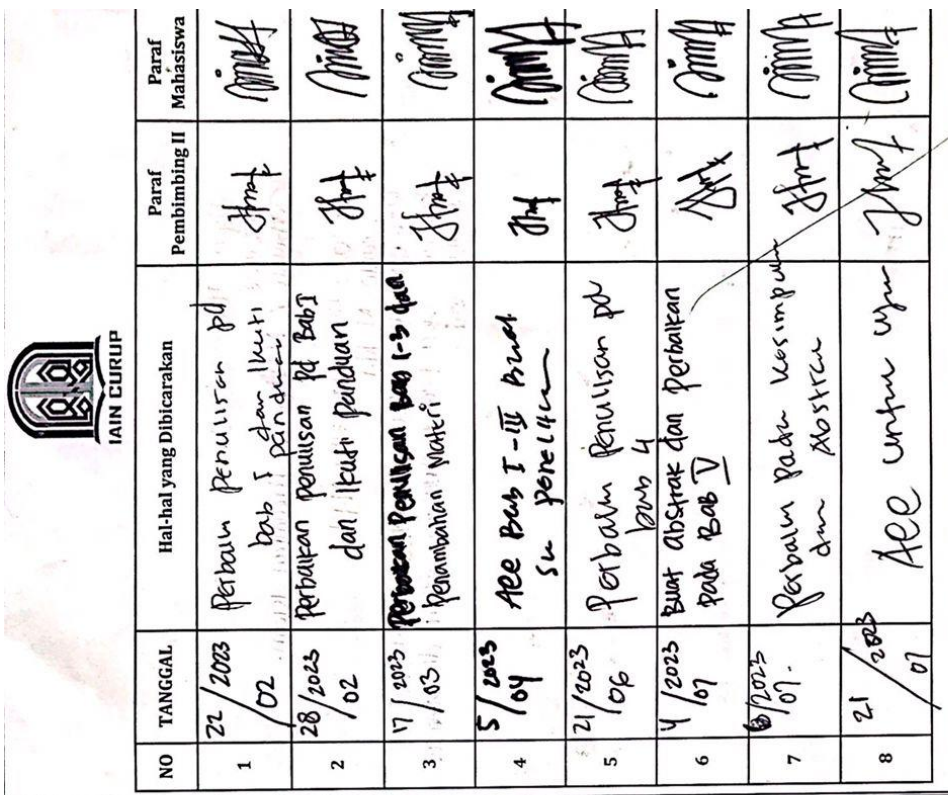 IAIN CURUP
NO TANGGAL Hal-hal yang Dibicarakan Paraf Pembimbing II Paraf Mahasiswa
1 22/02 2023 Perbaiki penulisan pd
bab I dan Ikuti
panduan
2 28/02 2023 Perbaikan penulisan pd Bab I
dan Ikuti panduan
3 17/03 2023 Perbaikan Penulisan Bab 1-3 dan
Penambahan Materi
4 5/04 2023 Acc Bab I - III Buat
SK penelitian
5 21/06 2023 Perbaiki Penulisan pd
bab 4
6 4/07 2023 Buat abstrak dan perbaikan
pada BAB V
7 /07 2023 Perbaiki pada kesimpulan
dan Abstrak
8 21/07 2023 Acc untuk